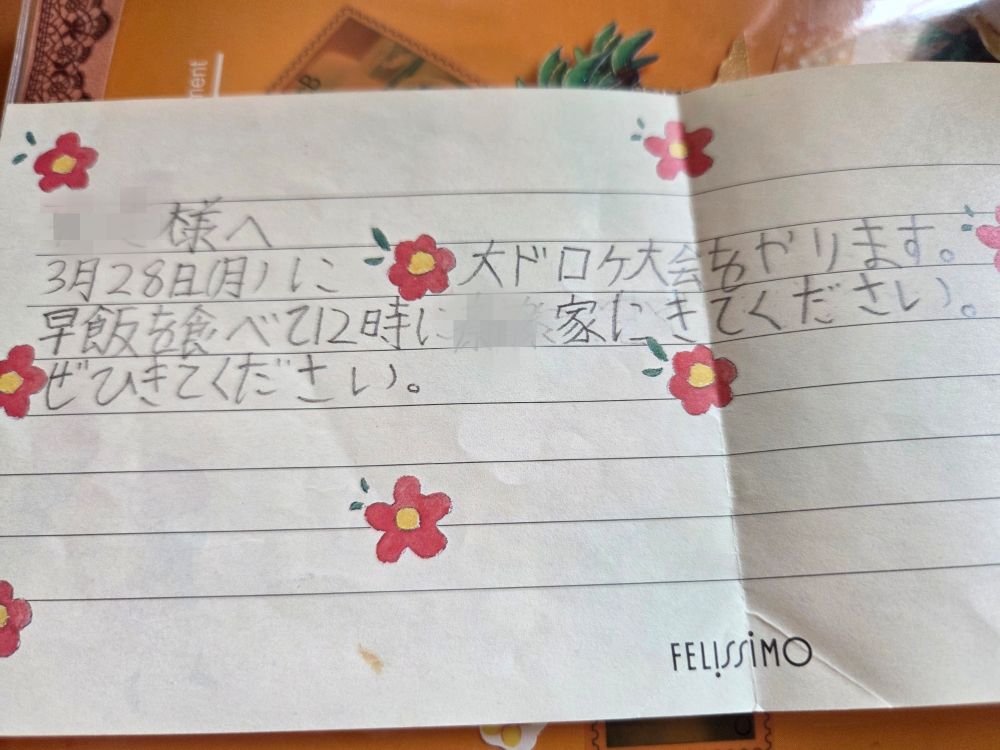 ment
B
様へ
3月28日(月)に 大ドロケ大会をやります。
早飯を食べて12時に 家にきてください。
ぜひきてください。
FELISSIMO